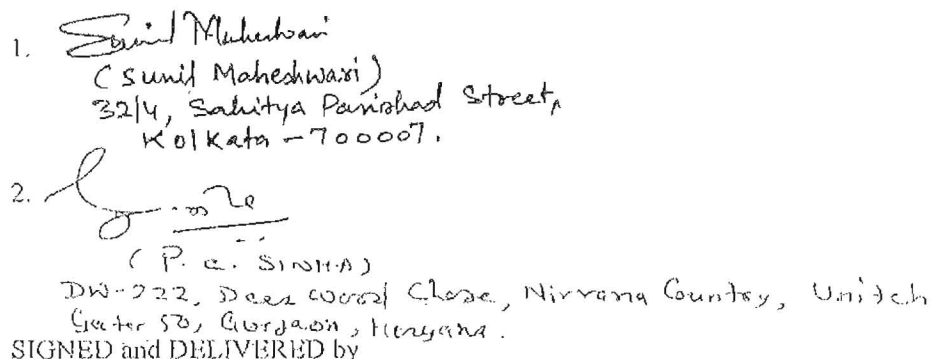 1. Sunil Maheshwari
(Sunil Maheshwari)
32/4, Sahitya Parishad Street,
Kolkata - 700007.
2.
(P. C. SINHA)
DW-222, Deer wood Chase, Nirvana Country, Unitech
Sector 50, Gurgaon, Haryana.
SIGNED and DELIVERED by